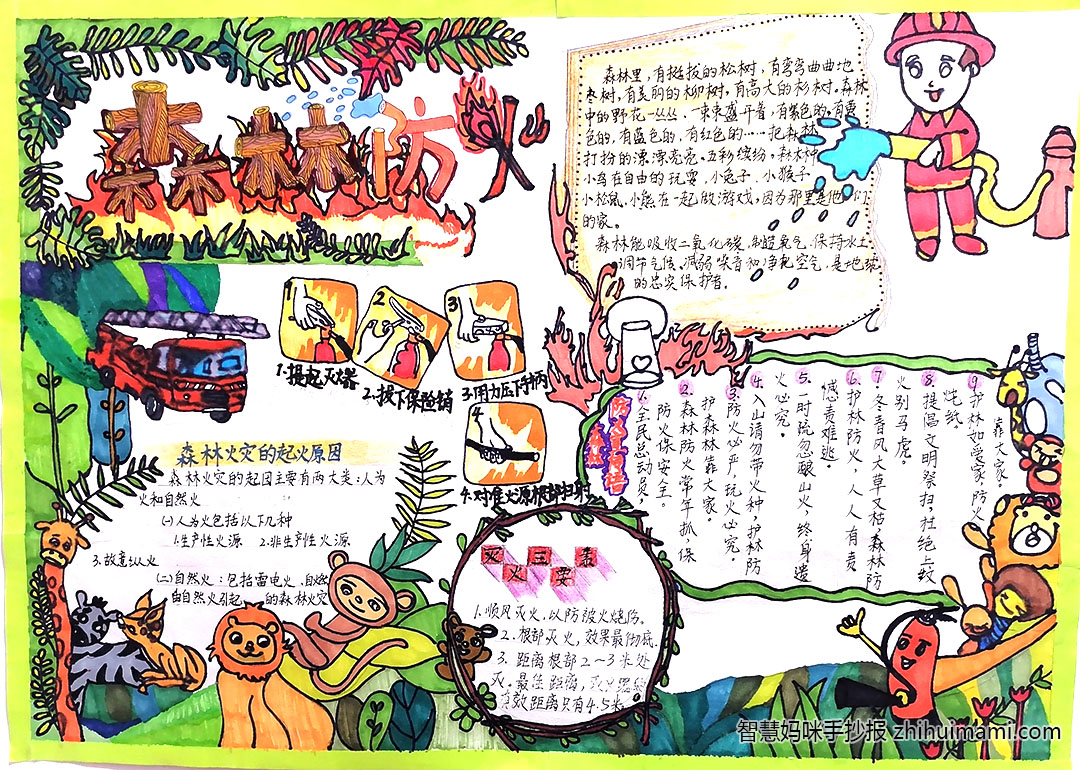 森林防火
森林里，有挺拔的松树，有弯弯曲曲地
枣树，有美丽的柳树，有高大的杉树。森林
中的野花一丛丛、一束束盛开着，有紫色的，有黄
色的，有蓝色的，有红色的……把森林
打扮的漂漂亮亮、五彩缤纷，森林中
小鸟在自由的玩耍，小兔子，小猴子
小松鼠，小熊在一起做游戏，因为那里是他们
的家。
森林能吸收二氧化碳，制造氧气，保持水土
调节气候、减弱噪音和净化空气，是地球
的忠实保护者。
1
2
3
1.提起灭火器
2.拔下保险销
3.用力压下手柄
4
4.对准火源根部扫射
森林火灾的起火原因
森林火灾的起因主要有两大类：人为
火和自然火
(一)人为火包括以下几种
1.生产性火源 2.非生产性火源
3.故意纵火
(二)自然火：包括雷电火，自燃
由自然火引起 的森林火灾
灭火三要素
1.顺风灭火，以防被火烧伤。
2.根部灭火，效果最彻底。
3.距离根部2~3米处
灭。最佳距离，灭火器
有效距离只有4.5米。
防火标语
1.全民总动员，
防火保安全。
2.森林防火常年抓，保
护森林靠大家。
3.防火必严，玩火必究。
4.入山请勿带火种，护林防
火必究。
5.一时疏忽酿山火，终身遗
憾责难逃。
6.护林防火，人人有责
7.冬春风大草又枯，森林防
火别马虎。
8.提倡文明祭扫，杜绝上坟
烧纸。
9.护林如爱家，防火
靠大家。
智慧妈咪手抄报 zhihuimami.com